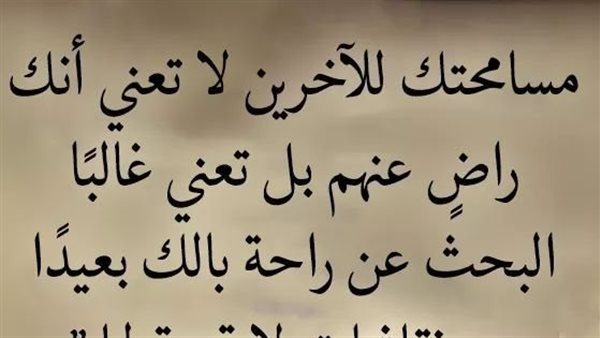 مسامحتك للآخرين لا تعني أنك
راضٍ عنهم بل تعني غالبًا
البحث عن راحة بالك بعيدًا